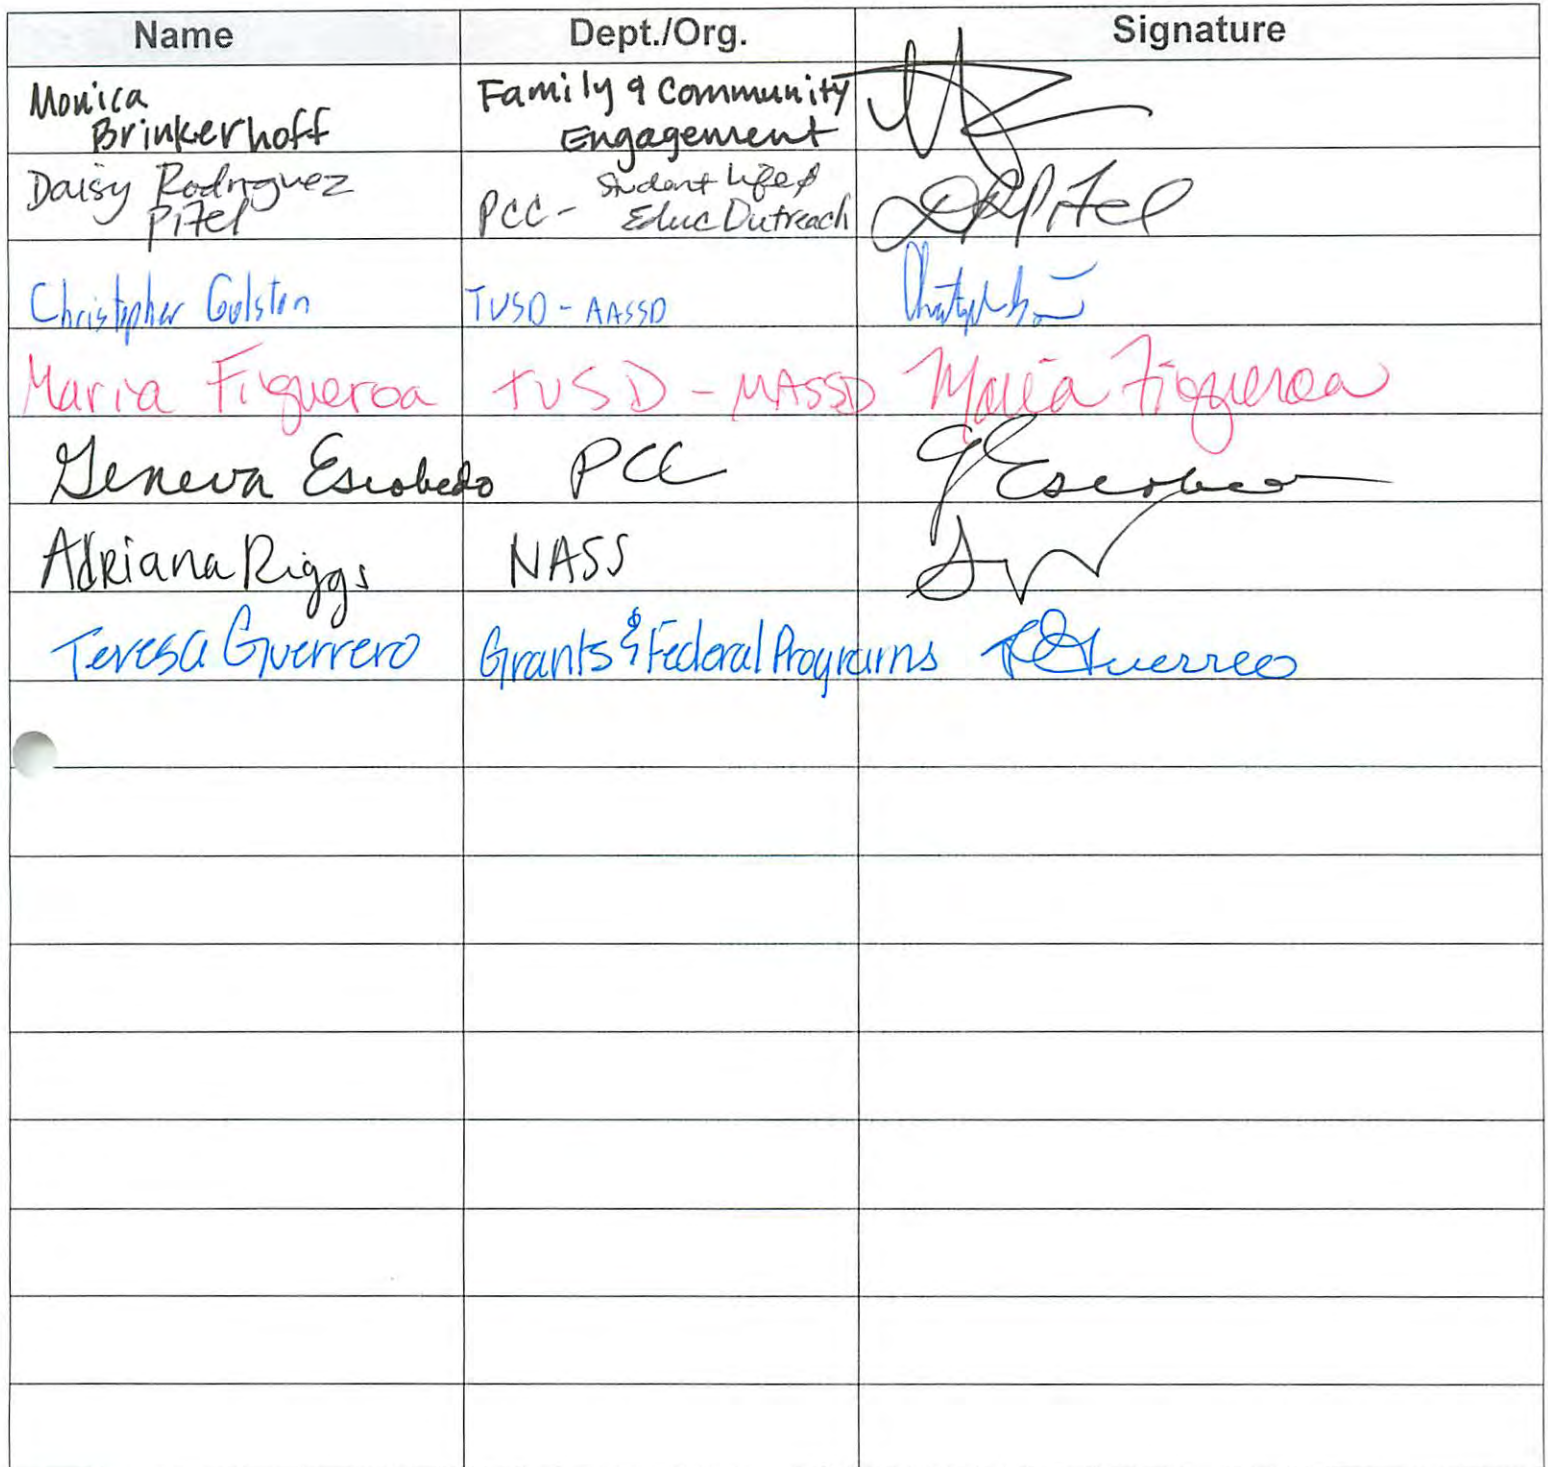 Name Dept./Org. Signature
Monica Family & Community
Brinkerhoff Engagement
Daisy Rodriguez Student Life &
Pitel PCC - Educ Outreach DRPitel
Christopher Golston TUSD - AASSD
Maria Figueroa TUSD - MASSD Maria Figueroa
Geneva Escobedo PCC G Escobedo
Adriana Riggs NASS
Teresa Guerrero Grants & Federal Programs TGuerrero